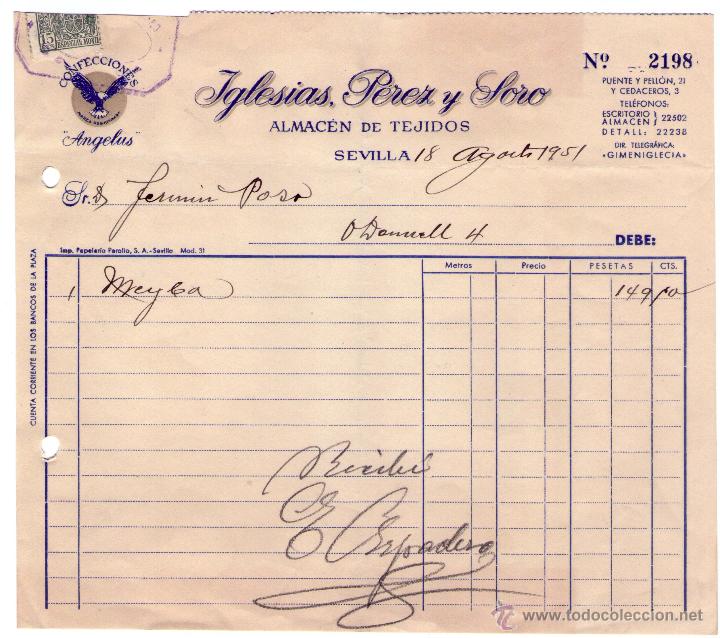 15 CTS
ESPECIAL MOVIL
CONFECCIONES
MARCA REGISTRADA
"Angelus"
Iglesias, Pérez y Soro
ALMACÉN DE TEJIDOS
SEVILLA 18 Agosto 1951
Nº 2198
PUENTE Y PELLÓN, 21
Y CEDACEROS, 3
TELÉFONOS:
ESCRITORIO
ALMACÉN } 22502
DETALL: 22238
DIR. TELEGRÁFICA:
«GIMENIGLECIA»
Sr. D. Fermin Poso
O Donnell 4 DEBE:
Imp. Papelería Perolio, S. A.-Sevilla Mod. 31
CUENTA CORRIENTE EN LOS BANCOS DE LA PLAZA
Metros Precio PESETAS CTS.
1 Meyba 149,00
Recibí
E Espadero
© www.todocoleccion.net